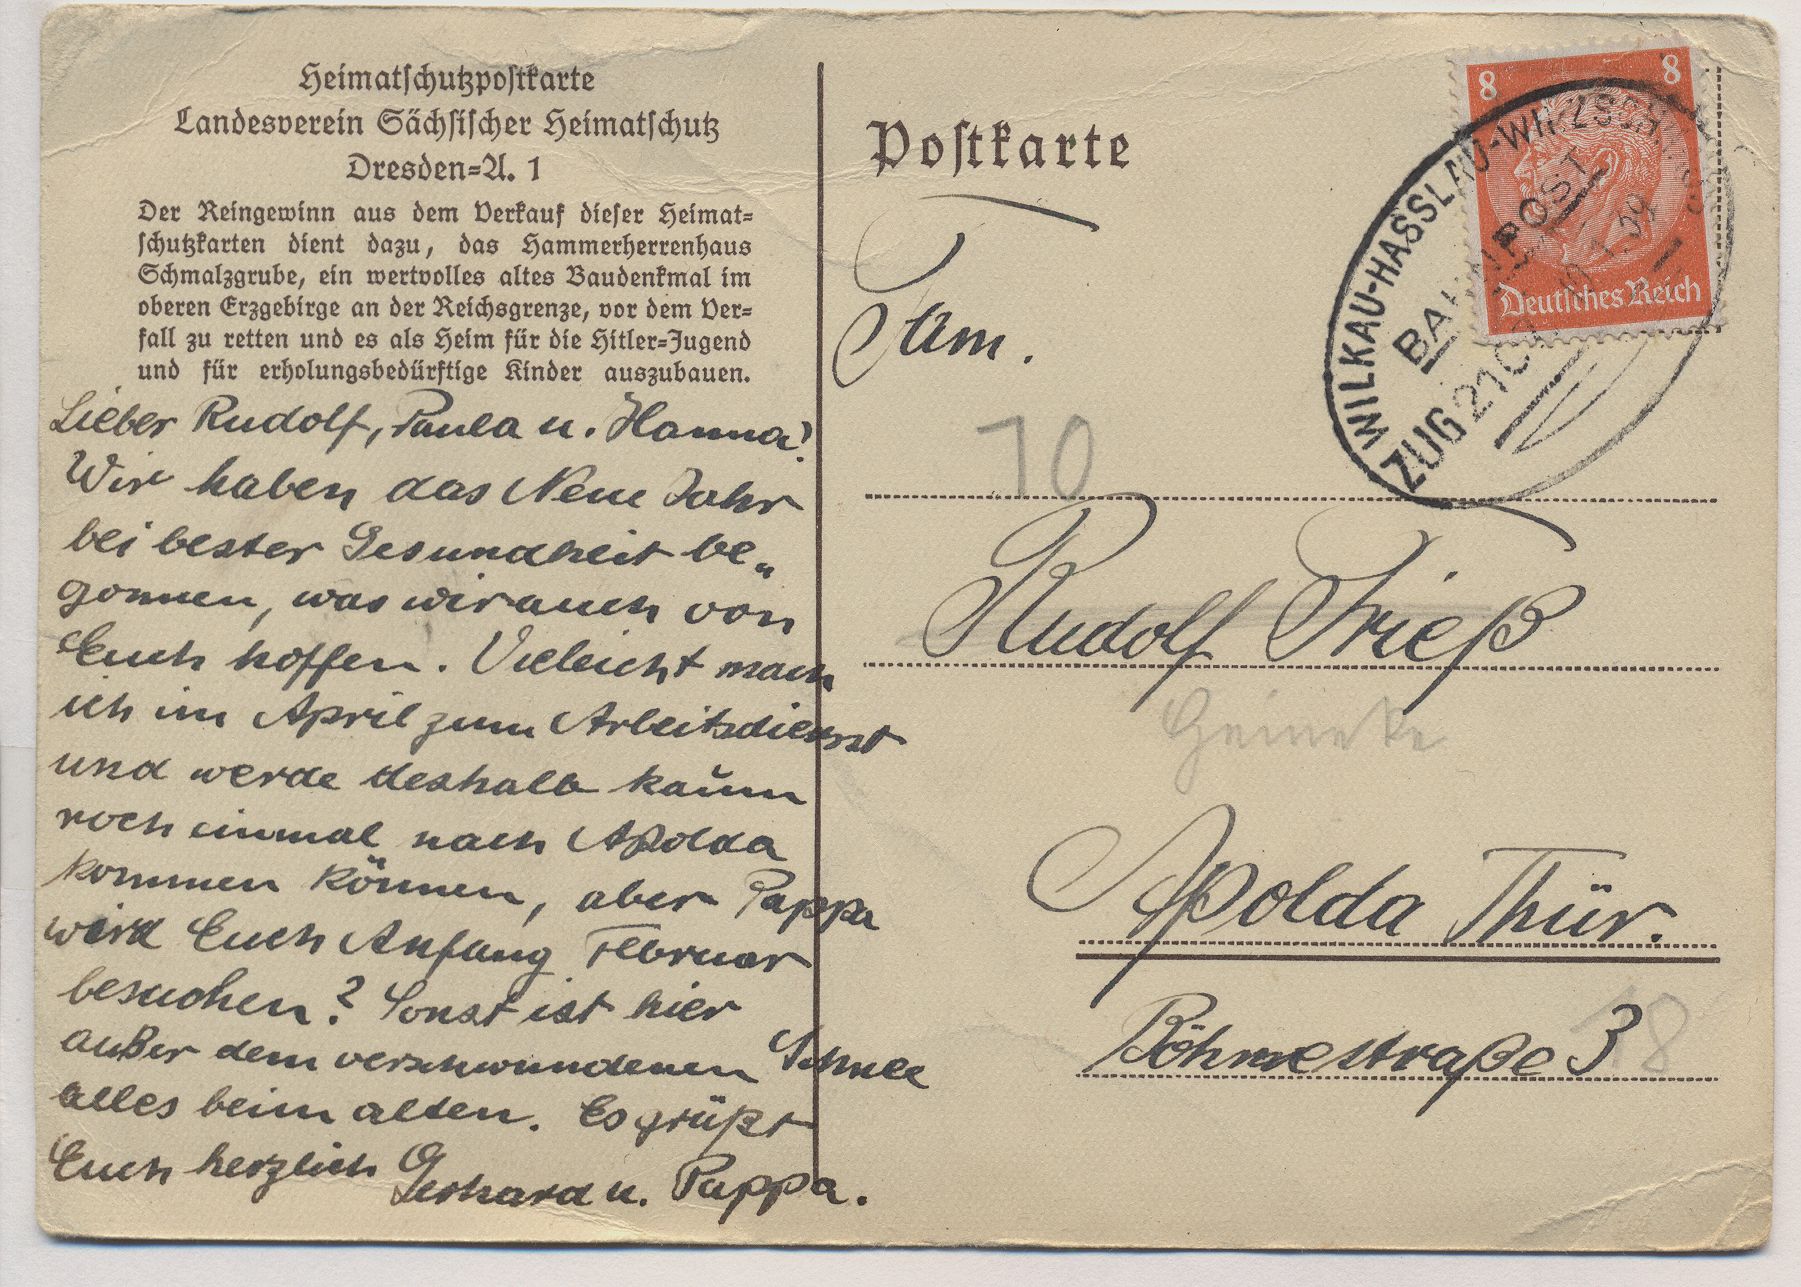 Heimatschutzpostkarte
Landesverein Sächsischer Heimatschutz
Dresden=A. 1
Der Reingewinn aus dem Verkauf dieser Heimat=
schutzkarten dient dazu, das Hammerherrenhaus
Schmalzgrube, ein wertvolles altes Baudenkmal im
oberen Erzgebirge an der Reichsgrenze, vor dem Ver=
fall zu retten und es als Heim für die Hitler=Jugend
und für erholungsbedürftige Kinder auszubauen.
Lieber Rudolf, Paula u. Hanna!
Wir haben das Neue Jahr
bei bester Gesundheit be„
gonnen, was wir auch von
Euch hoffen. Vieleicht mach
ich im April zum Arbeitsdienst
und werde deshalb kaum
noch einmal nach Apolda
kommen können, aber Pappa
wird Euch Anfang Februar
besuchen? Sonst ist hier
außer dem verschwundenen Schnee
alles beim alten. Es grüßt
Euch herzlich Gerhard u. Pappa.
Postkarte
8 8
Deutsches Reich
WILKAU-HASSLAU-WI
BAHNPOST
ZUG 210
Fam.
10
Rudolf Frieß
Heineke
Apolda Thür.
Böhmestraße 3
18